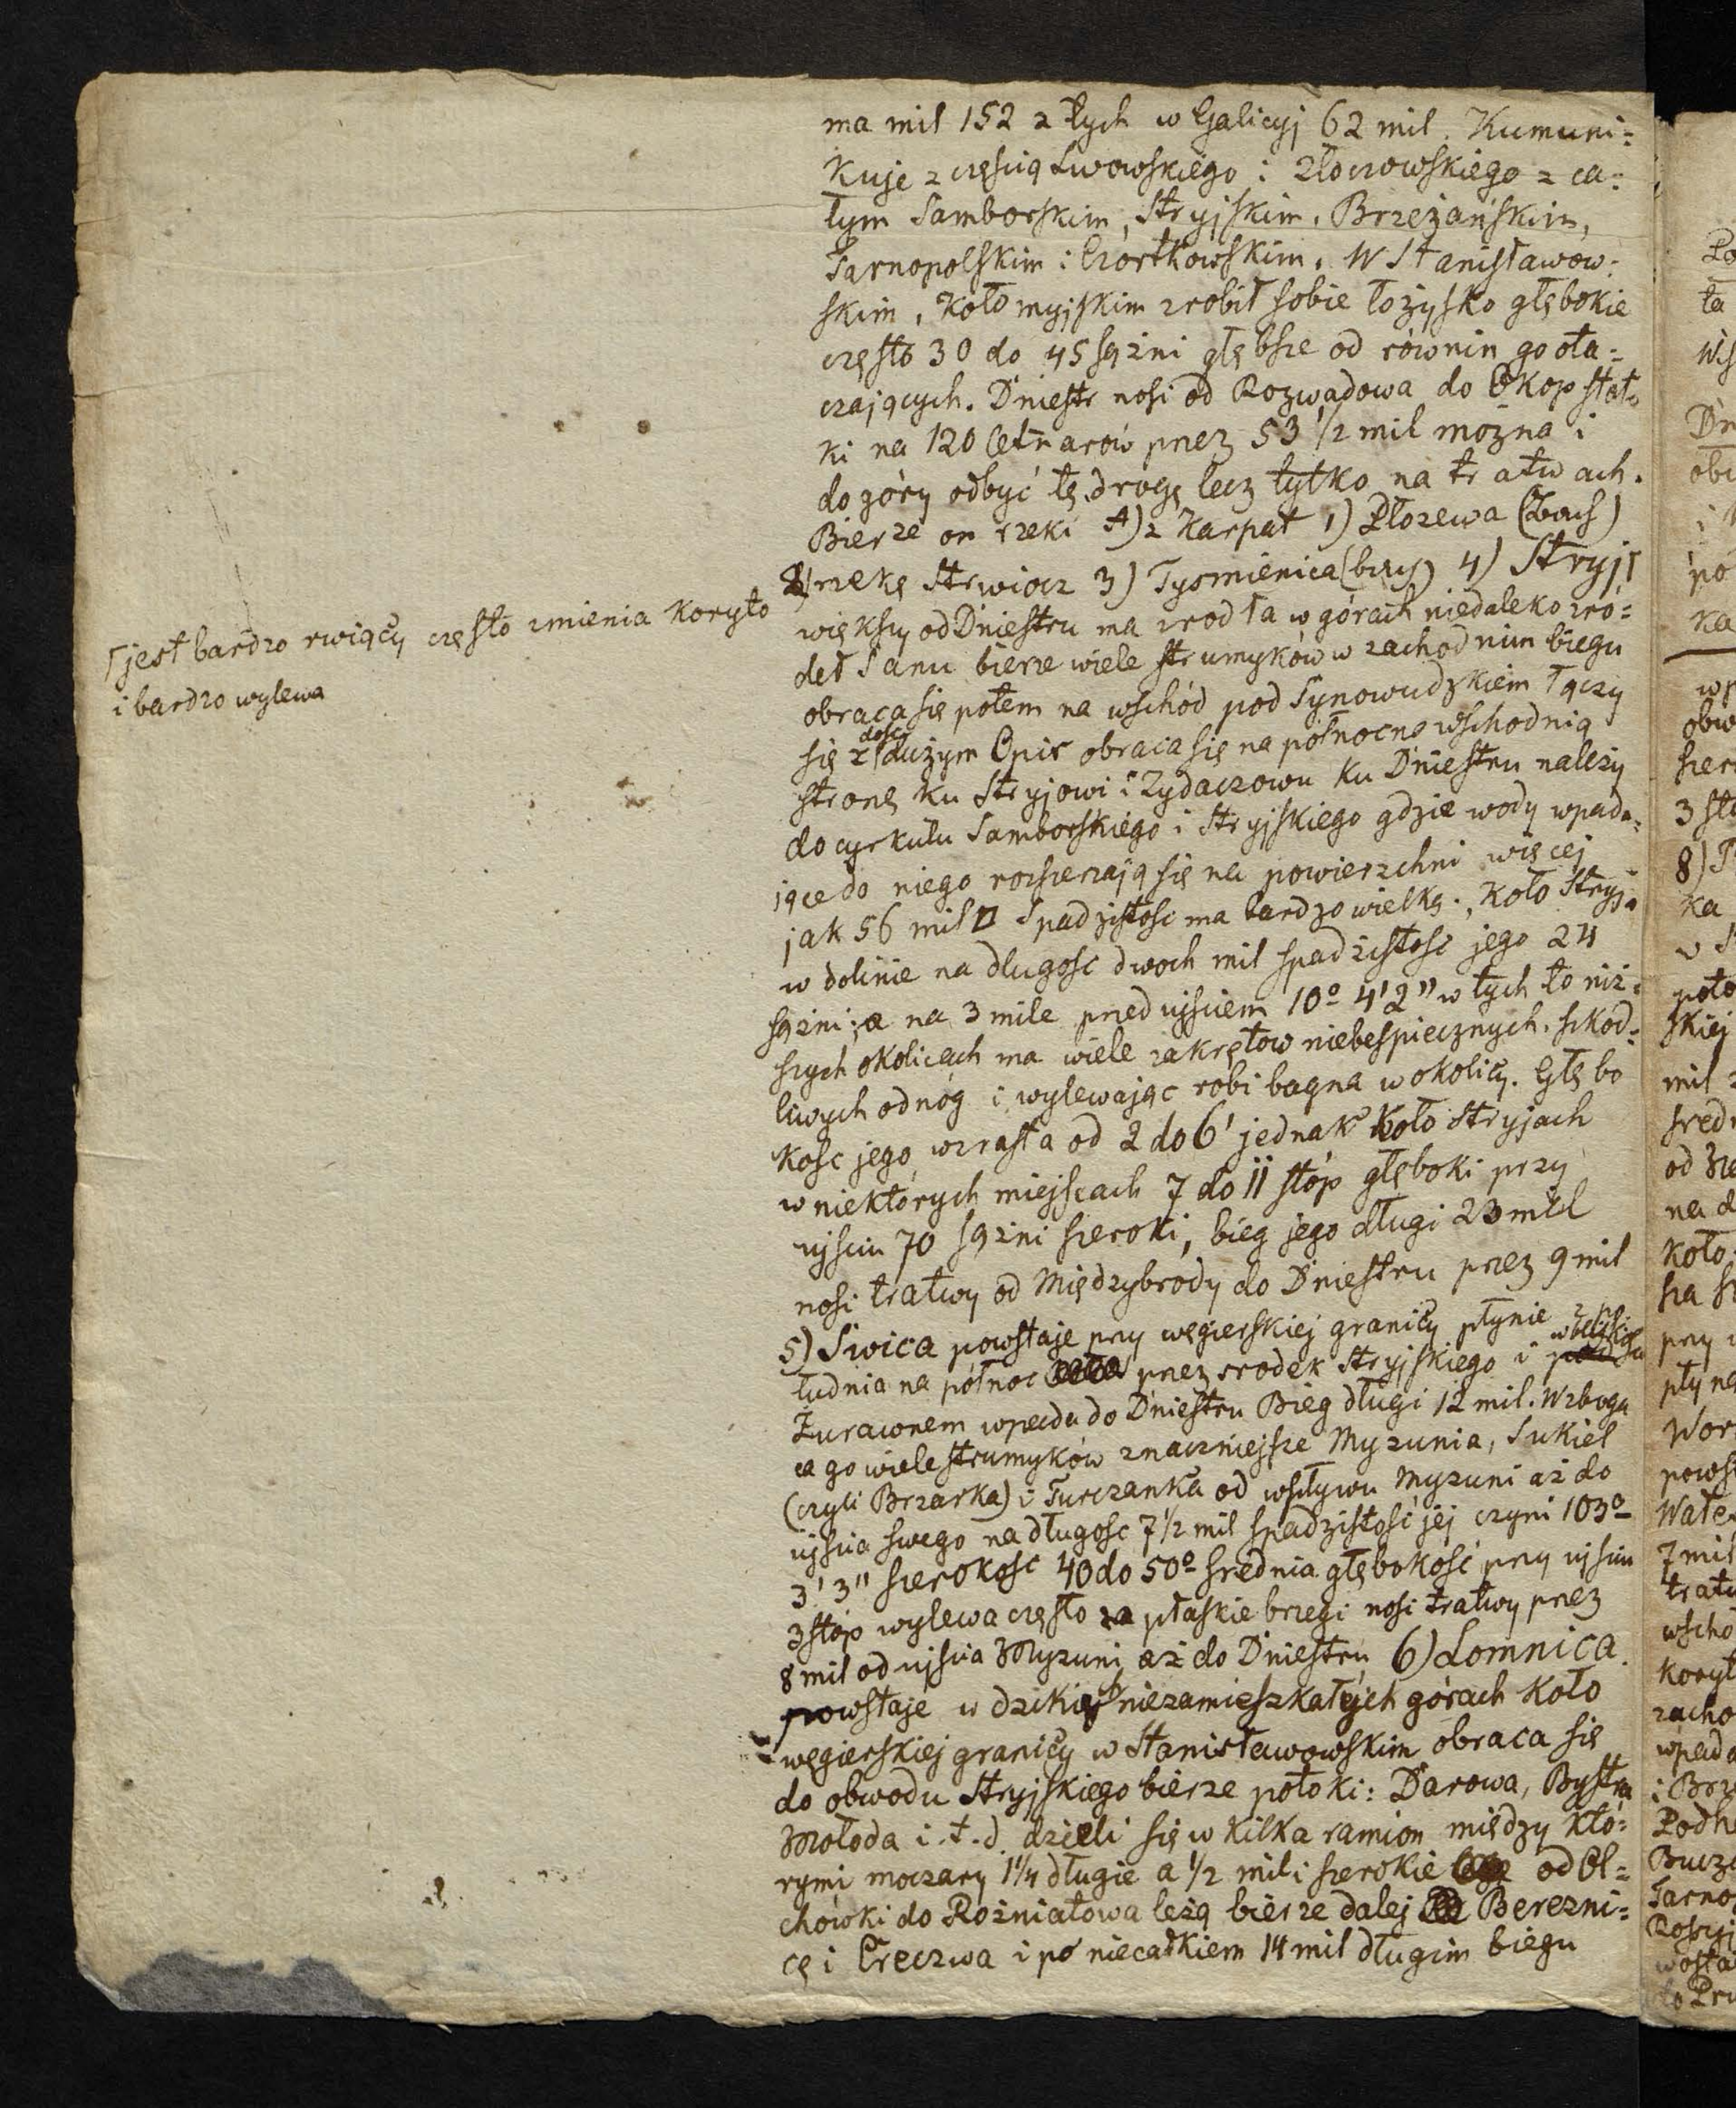 ma mil 152 z tych w Galicyj 62 mil. Kumuni=
kuje z częścią Lwowskiego i Złoczowskiego z ca=
łym Samborskim, Stryjskim, Brzeżańskim,
Tarnopolskim i Czortkowskim. W Stanisławow=
skim, Kołomyjskim zrobił sobie łożysko głębokie
często 30 do 45 sążni głębsze od równin go ota=
czających. Dniestr nosi od Rozwadowa do Okop statk
ki na 120 Cetnarów przez 53 1/2 mil można i
do góry odbyć tę drogę lecz tylko na tratwach.
Bierze on rzeki A) z Karpat 1) Płozewa
2) rzekę Strwiocz 3) Tysmienica 4) Stryj ſ
większy od Dniestru ma zrodła w górach niedaleko zró=
deł Sanu bierze wiele strumyków w zachodnim biegu
obraca się potem na wschód pod Synowudzkiem łączy
się z dość dużym Opir obraca się na północno wschodnią
stronę ku Stryjowi i Żydaczowu ku Dniestru należy
do cyrkułu Samborskiego i Stryjskiego gdzie wody wpada=
jące do niego rozszerzają się na powierzchni więcej
jak 56 mil □ Spadzistość ma bardzo wielką, koło Stryja
w dolinie na dlugosc dwoch mil spadzistość jego 24
sążni; a na 3 mile przed ujściem 10º 4' 2" w tych to niż=
szych okolicach ma wiele zakrętow niebespiecznych, szkod=
liwych odnóg i wylewając robi bagna w okolicy. Głębo
kosc jego wzrasta od 2 do 6' jednak koło Stryja ch
w niektórych miejscach 7 do 11 stóp głęboki przy
ujściu 70 sążni szeroki, bieg jego długi 23 mil
nosi tratwy od Międzybrody do Dniestru przez 9 mil
5) Swica powstaje przy węgierskiej granicy płynie z po
łudnia na północ przez srodek Stryjskiego i w blizkości
Żurawnem wpada do Dniestru Bieg długi 12 mil. Wzboga
ca go wiele strumyków znaczniejsze Myzunia, Sukiel
(czyli Brzarka) i Turczanka od wpływu Myzuni aż do
ujscia swego na długosc 7 1/2 mil spadzistość jej czyni 103º
3' 3" szerokosc 40 do 50º średnia głębokość przy ujściu
3 stóp wylewa często za płaskie brzegi nosi tratwy przez
8 mil od ujscia Myzuni aż do Dniestru 6) Lomnica
powstaje w dzikich niezamieszkałych górach koło
węgierskiej granicy w Stanisławowskim obraca się
do obwodu Stryjskiego bierze potoki: Darowa, Bystra
Mołoda i.t.d. dzieli się w kilka ramion między któ=
rymi moczary 1 1/4 długie a 1/2 mili szerokie od Ol=
chówki do Rożniatowa leżą bierze dalej Berezni=
cę i Czeczwa i po niecałkiem 14 mil długim biegu
ſ jest bardzo rwiący często zmienia koryto
i bardzo wylewa